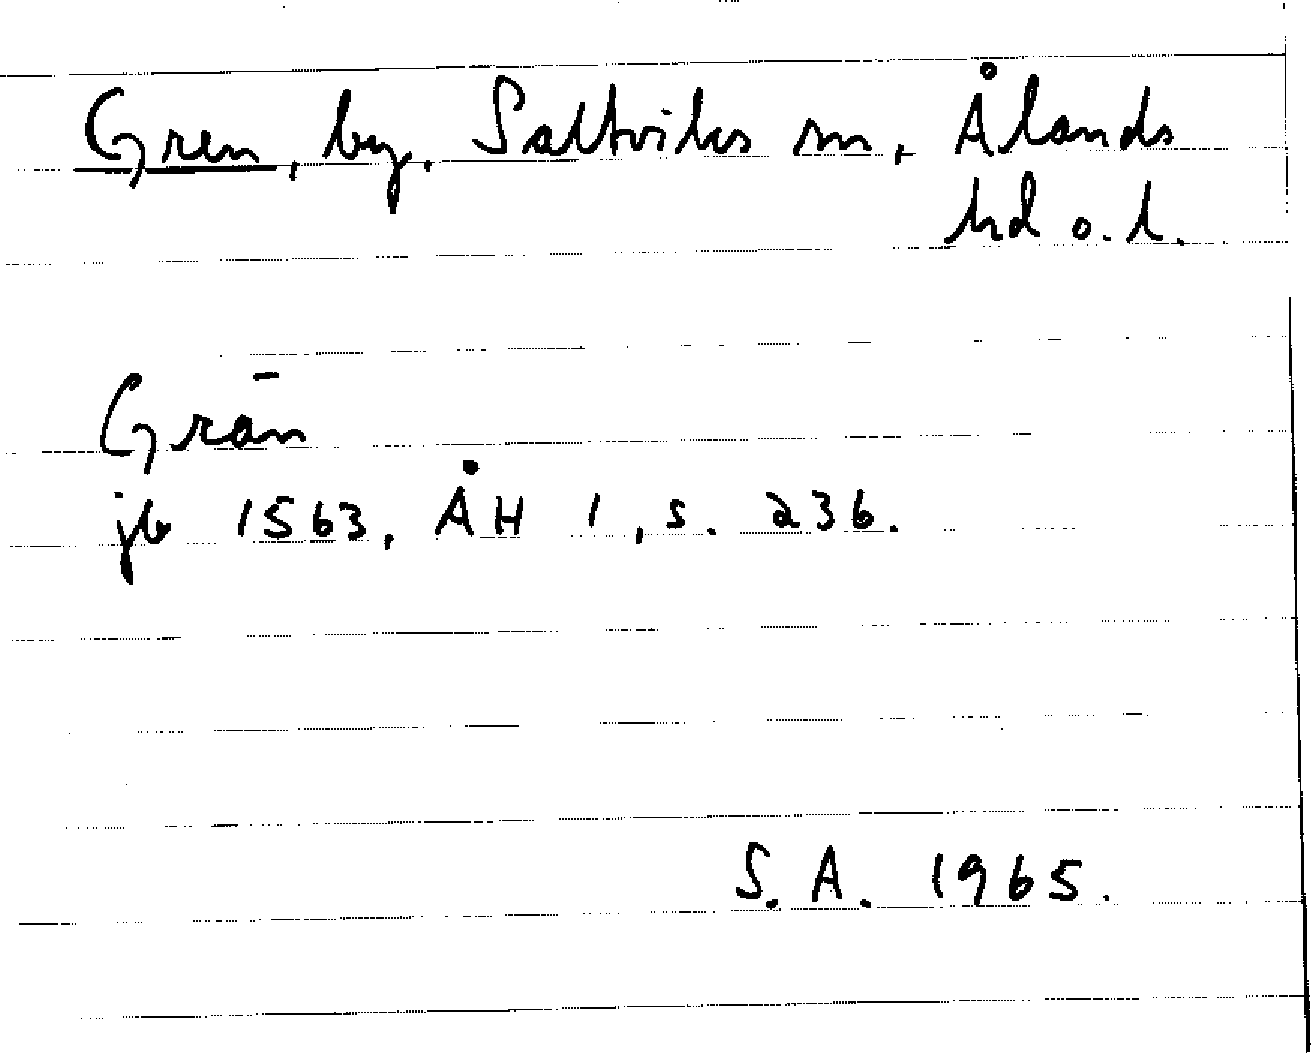 Gren, by, Saltviks sn, Ålands
hd o. l.
Grän
jb 1563, ÅH 1, s. 236.
S. A. 1965.